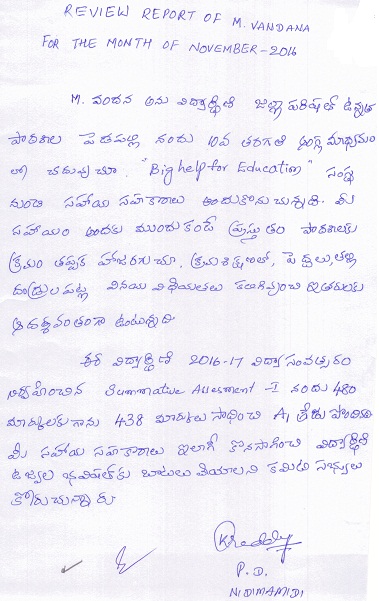 REVIEW REPORT OF M. VANDANA
FOR THE MONTH OF NOVEMBER-2016
M. వందన అను విద్యార్థిని జిల్లా పరిషత్ ఉన్నత
పాఠశాల పెడపల్లి నందు 10వ తరగతి ఇంగ్లీష్ మాధ్యమం
లో చదువుచూ. "Big help for Education" సంస్థ
నుండి సహాయ సహకారాలు అందుకొనుచున్నది. మీ
సహాయం అందక ముందుకంటే ప్రస్తుతం పాఠశాలకు
క్రమం తప్పక హాజరగుచూ, క్రమశిక్షణతో, పెద్దలు, తల్లి
దండ్రుల పట్ల వినయ విధేయతలు కలిగివుంచి ఇతరులకు
ఆదర్శవంతంగా ఉంటున్నది
ఈ విద్యార్థిని 2016-17 విద్యా సంవత్సరం
నిర్వహించిన Summative Assesment - I నందు 480
మార్కులకుగాను 438 మార్కులు సాధించి A1 గ్రేడు పొందినది
మీ సహాయ సహకారాలు ఇలాగే కొనసాగించి విద్యార్థిని
ఉజ్వల భవిష్యత్ కు బాటలు వేయాలని కమిటి సభ్యులు
కోరుచున్నారు
KReddy
P.D.
NIDIMAMIDI